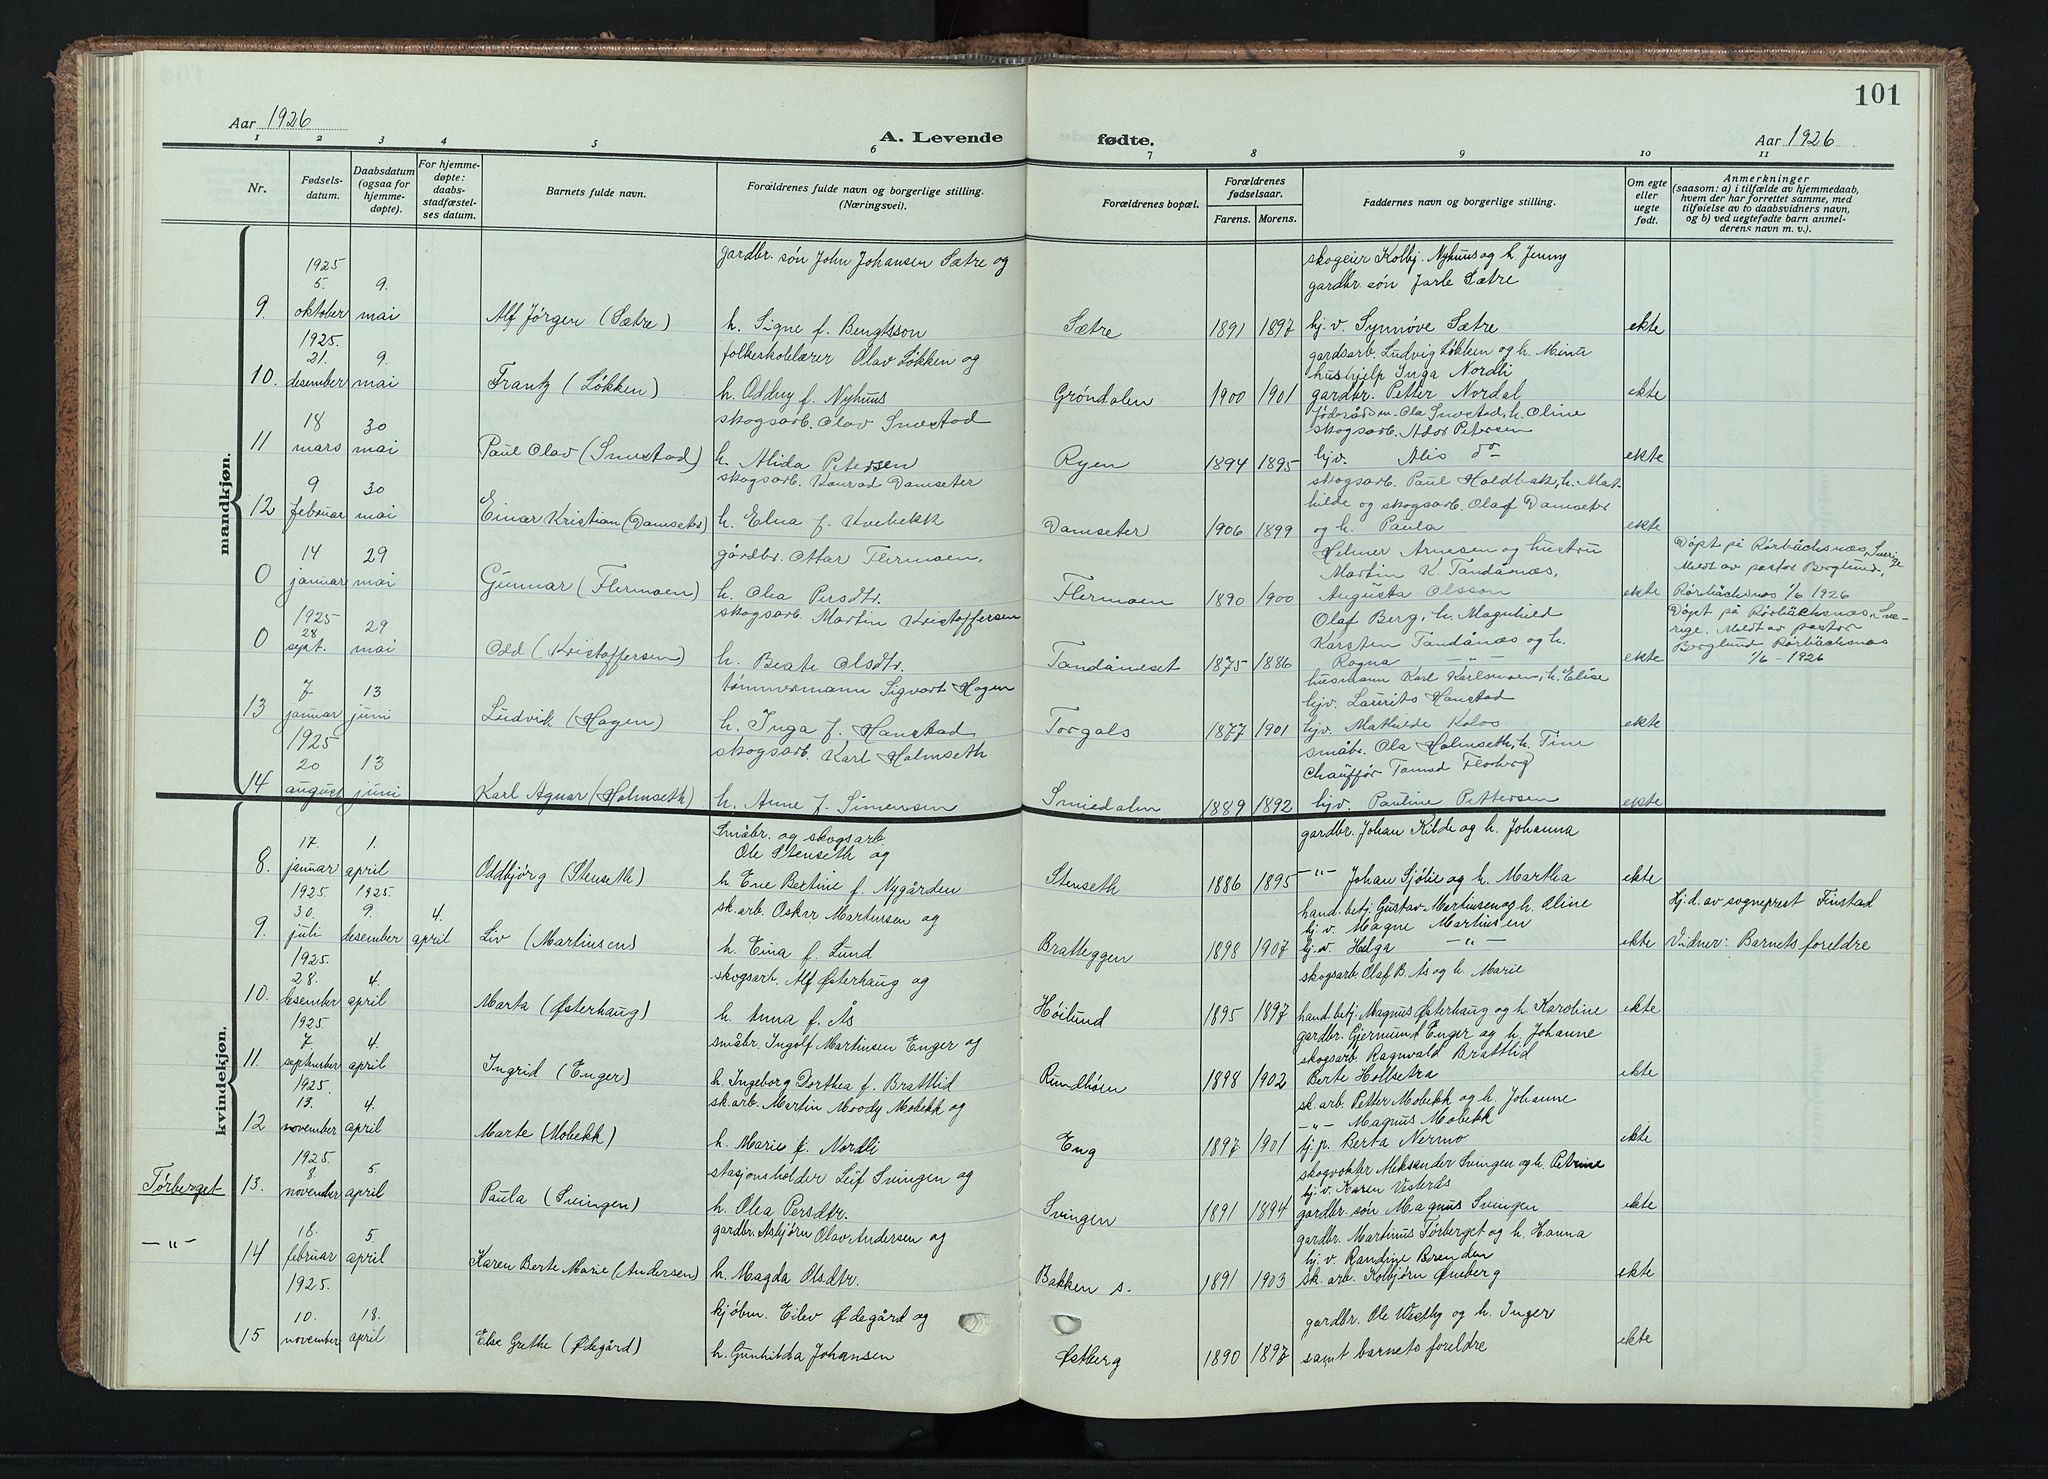 101
Aar 1926
A. Levende fødte.
Aar 1926
1 2 3 4 5 6 7 8 9 10 11
Nr.
Fødsels-
datum.
Daabsdatum
(ogsaa for
hjemme-
døpte).
For hjemme-
døpte:
daabs-
stadfæstel-
ses datum.
Barnets fulde navn.
Forældrenes fulde navn og borgerlige stilling.
(Næringsvei).
Forældrenes bopæl.
Forældrenes
fødselsaar.
Farens. Morens.
Faddernes navn og borgerlige stilling.
Om egte
eller
uegte
født.
Anmerkninger
(saasom: a) i tilfælde av hjemmedaab,
hvem der har forrettet samme, med
tilføielse av to daabsvidners navn,
og b) ved uegtefødte barn anmel-
derens navn m. v.).
mandkjøn.
gardbr. søn John Johansen Sætre og skogeier Kolbj. Nyhuus og h. Jenny
1925
5. 9. gardbr. søn Jarle Sætre
9. oktober mai Alf Jørgen (Sætre) h. Signe f. Bengtsson Sætre 1891 1897 hj. v. Synnøve Sætre ekte
1925.
21. 9. folkeskolelærer Olav Løkken og gardsarb. Ludvig Løkken og h. Mina
hushjelp Inga Nordli
10. desember mai Frantz (Løkken) h. Oddny f. Nyhuus Grøndalen 1900 1901 gardbr. Petter Nordal ekte
18 30 skogsarb. Olav Smestad føderådsm. Ola Smestad, h. Oline
skogsarb. Ador Petersen
11 mars mai Paul Olav (Smestad) h. Alida Petersen Ryen 1894 1895 hjv. Alis do ekte
9 30 skogsarb. Konrad Damseter skogsarb. Paul Holdbak, h. Mat-
hilde og skogsarb. Olaf Damseter
12 februar mai Einar Kristian (Damseter) h. Elna f. Kvebekk Damseter 1906 1899 og h. Paula ekte
14 29 gårdbr. Ottar Flermoen, Helmer Arnesen og hustru
Martin K. Tandånæs, Døpt på Rörbäcksnæs, Sverige
Meldt av pastor Berglund,
0 januar mai Gunnar (Flermoen) h. Olea Persdtr. Flermoen 1890 1900 Augusta Olsson ekte Rörbäcksnæs 1/6 1926
1925
28 29 skogsarb. Martin Kristoffersen Olaf Berg, h. Magnhild Døpt på Rörbäcksnæs, Sve-
Karsten Tandånæs og h. rige. Meldt av pastor
0 sept. mai Odd (Kristoffersen) h. Beate Olsdtr. Tandåneset 1875 1886 Ragna —"— ekte Berglund Rörbäcksnæs
1/6 - 1926
7 13 tømmermann Sigvart Hagen husmann Karl Karlsmoen, h. Elise
hjv. Laurits Hanstad
13 januar juni Ludvik (Hagen) h. Inga f. Hanstad Torgals 1877 1901 hjv. Mathilde Kolos ekte
1925
20 13 skogsarb. Karl Holmseth småbr. Ola Holmseth, h. Tine
Chauffør
14 august juni Karl Agnar (Holmseth) h. Anne f. Simensen Smiedalen 1889 1892 hjv. Pauline Pettersen ekte
kvindekjøn.
17. 1. Småbr. og skogsarb. gardbr. Johan Kilde og h. Johanna
Ole Stenseth og
8. januar april Oddbjørg (Stenseth) h. Ene Bertine f. Nygården Stenseth 1886 1895 —"— Johan Sjølie og h. Martha ekte
1925. 1925.
30. 9. 4. sk. arb. Oskar Martinsen og hand. betj. Gustav Martinsen og h. Oline Hj. d. av sogneprest Finstad
hj. v. Magne Martinsen
9. juli desember april Liv (Martinsen) h. Eina f. Lund Bratteggen 1898 1907 hj. v. Helga —"— ekte Vidner: Barnets foreldre
1925.
28. 4. skogsarb. Alf Østerhaug og skogsarb. Olaf B. Ås og h. Marie
10. desember april Marta (Østerhaug) h. Anna f. Ås Høilund 1895 1897 hand. betj. Magnus Østerhaug og h. Karoline ekte
1925.
7 4. småbr. Ingolf Martinsen Enger og gardbr. Gjermund Enger og h. Johanne
skogsarb. Ragnvald Brattlid
11. september april Ingrid (Enger) h. Ingeborg Dorthea f. Brattlid Rundhöen 1898 1902 Berte Hollsetra ekte
1925.
13. 4. sk. arb. Martin Moody Mobekk og sk. arb. Petter Mobekk og h. Johanne
—"— Magnus Mobekk
12 november april Marte (Mobekk) h. Marie f. Nordli Eng 1897 1901 hj. p. Berta Nermo ekte
1925.
8. 5. stasjonsholder Leif Svingen og skogvokter Aleksander Svingen og h. Petrine
hj. v. Karen Vesterås
Tørberget 13. november april Paula (Svingen) h. Olea Persdtr. Svingen 1891 1894 gardbr. søn Magnus Svingen ekte
18. 5. gardbr. Asbjørn Olav Andersen og gardbr. Martinus Tørberget og h. Hanna
hj. v. Randine Berenden
—"— 14 februar april Karen Berte Marie (Andersen) h. Magda Olsdtr. Bakken s. 1891 1903 sk. arb. Kolbjørn Øneberg ekte
1925.
10. 18. kjøbm. Eilev Ødegård og gardbr. Ole Westby og h. Inger
15 november april Else Grethe (Ødegård) h. Gunhilda Johansen Østberg 1890 1897 samt barnets foreldre ekte